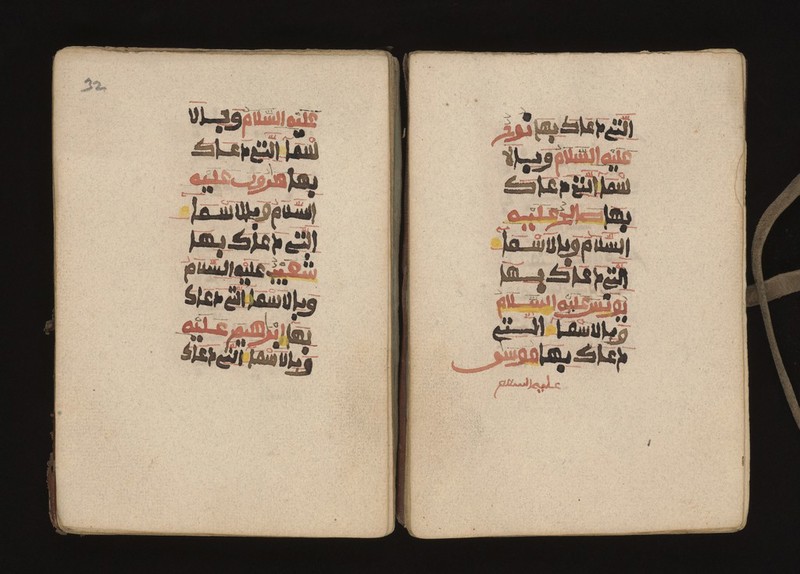 التي دعاك بها نوح
عليه السلام وبالا
سمآ التي دعاك
بها صالح عليه
السلام وبالاسمآ
التي دعاك بها
يونس عليه السلام
وبالاسمآ التي
دعاك بها موسى
عليه السلام
32
عليه السلام وبالا
سمآ التي دعاك
بها هرون عليه
السلام وبالاسمآ
التي دعاك بها
شعيب عليه السلام
وبالاسمآ التي دعاك
بها ابرهيم عليه
وبالاسمآ التي دعاك